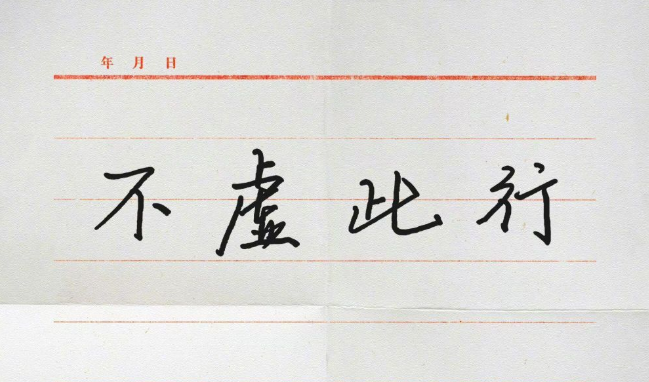 年 月 日
不虚此行